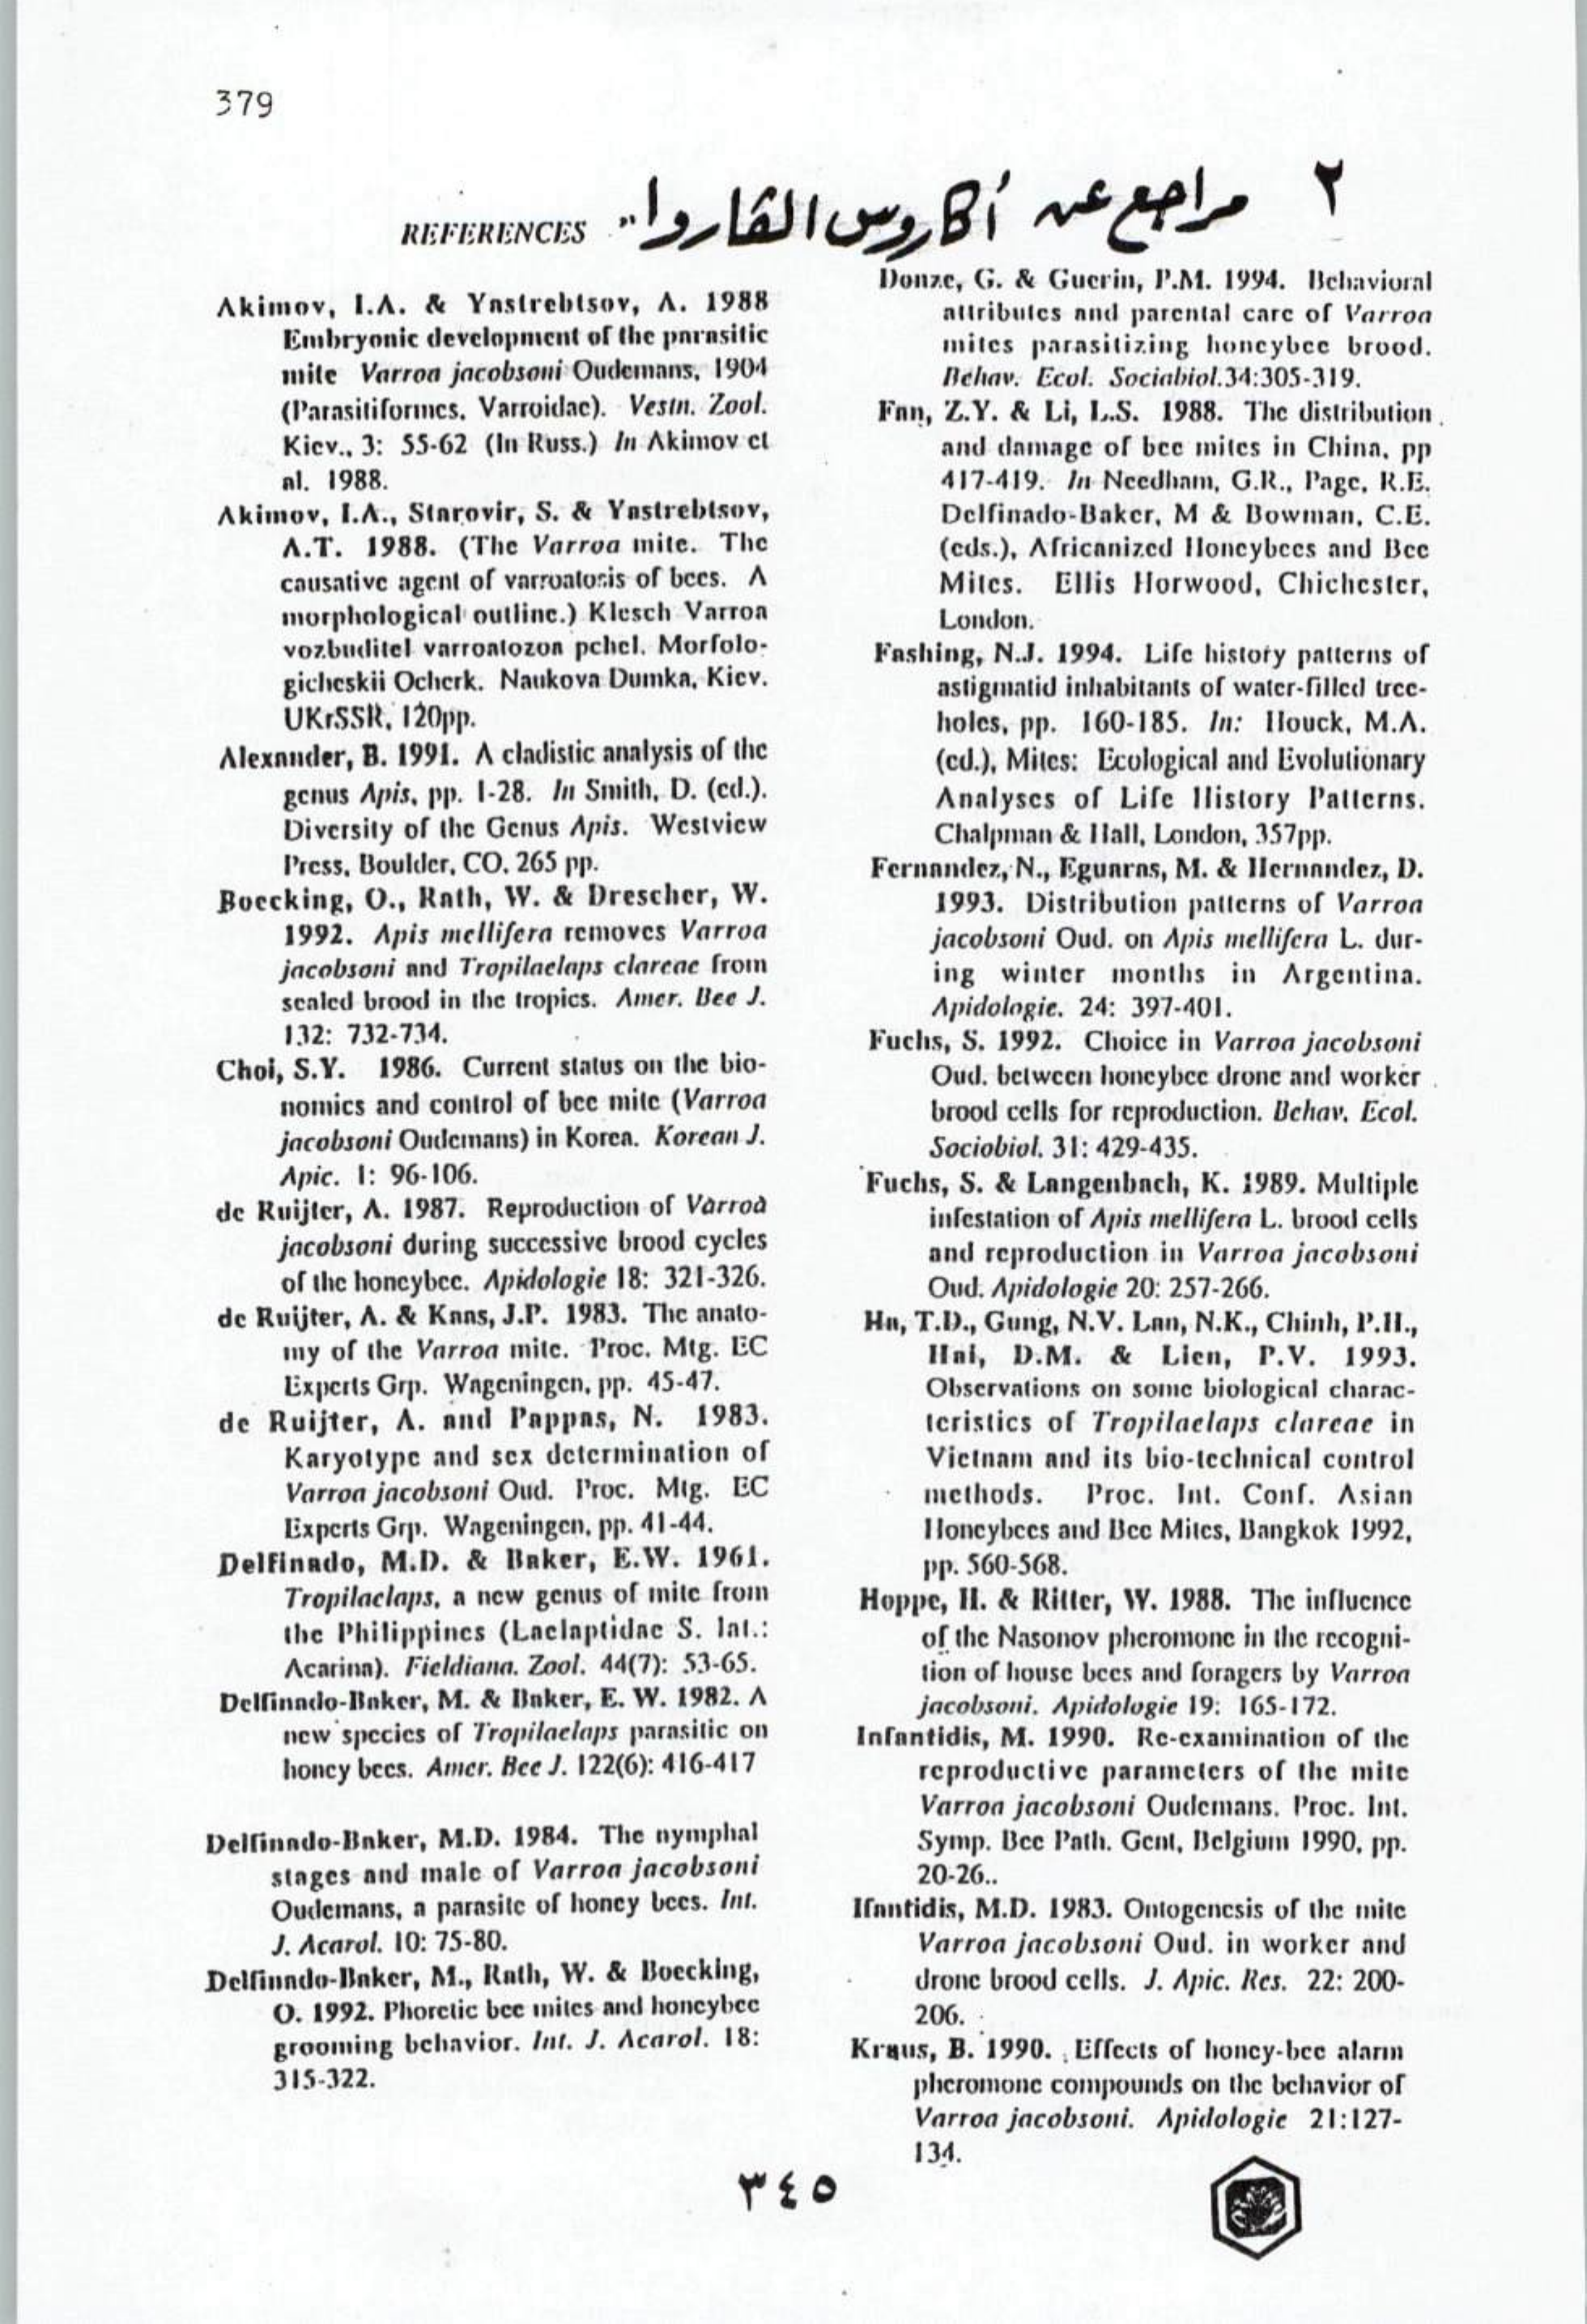 379
٢ مراجع عن أكاروس القاروا"
REFERENCES
Akimov, I.A. & Yastrebtsov, A. 1988
Embryonic development of the parasitic
mite Varroa jacobsoni Oudemans, 1904
(Parasitiformes, Varroidae). Vestn. Zool.
Kiev., 3: 55-62 (In Russ.) In Akimov et
al. 1988.
Akimov, I.A., Starovir, S. & Yastrebtsov,
A.T. 1988. (The Varroa mite. The
causative agent of varroatosis of bees. A
morphological outline.) Klesch Varroa
vozbuditel varroatozon pchel. Morfolo-
gicheskii Ocherk. Naukova Dumka, Kiev.
UKrSSR, 120pp.
Alexander, B. 1991. A cladistic analysis of the
genus Apis, pp. 1-28. In Smith, D. (ed.).
Diversity of the Genus Apis. Westview
Press, Boulder, CO. 265 pp.
Boecking, O., Rath, W. & Drescher, W.
1992. Apis mellifera removes Varroa
jacobsoni and Tropilaelaps clareae from
sealed brood in the tropics. Amer. Bee J.
132: 732-734.
Choi, S.Y. 1986. Current status on the bio-
nomics and control of bee mite (Varroa
jacobsoni Oudemans) in Korea. Korean J.
Apic. 1: 96-106.
de Ruijter, A. 1987. Reproduction of Varroa
jacobsoni during successive brood cycles
of the honeybee. Apidologie 18: 321-326.
de Ruijter, A. & Kaas, J.P. 1983. The anato-
my of the Varroa mite. Proc. Mtg. EC
Experts Grp. Wageningen, pp. 45-47.
de Ruijter, A. and Pappas, N. 1983.
Karyotype and sex determination of
Varroa jacobsoni Oud. Proc. Mtg. EC
Experts Grp. Wageningen, pp. 41-44.
Delfinado, M.D. & Baker, E.W. 1961.
Tropilaelaps, a new genus of mite from
the Philippines (Laelaptidae S. lat.:
Acarina). Fieldiana. Zool. 44(7): 53-65.
Delfinado-Baker, M. & Baker, E. W. 1982. A
new species of Tropilaelaps parasitic on
honey bees. Amer. Bee J. 122(6): 416-417
Delfinado-Baker, M.D. 1984. The nymphal
stages and male of Varroa jacobsoni
Oudemans, a parasite of honey bees. Int.
J. Acarol. 10: 75-80.
Delfinado-Baker, M., Rath, W. & Boecking,
O. 1992. Phoretic bee mites and honeybee
grooming behavior. Int. J. Acarol. 18:
315-322.
Donze, G. & Guerin, P.M. 1994. Behavioral
attributes and parental care of Varroa
mites parasitizing honeybee brood.
Behav. Ecol. Sociabiol.34:305-319.
Fan, Z.Y. & Li, L.S. 1988. The distribution
and damage of bee mites in China, pp
417-419. In Needham, G.R., Page, R.E.
Delfinado-Baker, M & Bowman, C.E.
(eds.), Africanized Honeybees and Bee
Mites. Ellis Horwood, Chichester,
London.
Fashing, N.J. 1994. Life history patterns of
astigmatid inhabitants of water-filled tree-
holes, pp. 160-185. In: Houck, M.A.
(ed.), Mites: Ecological and Evolutionary
Analyses of Life History Patterns.
Chalpman & Hall, London, 357pp.
Fernandez, N., Eguaras, M. & Hernandez, D.
1993. Distribution patterns of Varroa
jacobsoni Oud. on Apis mellifera L. dur-
ing winter months in Argentina.
Apidologie. 24: 397-401.
Fuchs, S. 1992. Choice in Varroa jacobsoni
Oud. between honeybee drone and worker
brood cells for reproduction. Behav. Ecol.
Sociobiol. 31: 429-435.
Fuchs, S. & Langenbach, K. 1989. Multiple
infestation of Apis mellifera L. brood cells
and reproduction in Varroa jacobsoni
Oud. Apidologie 20: 257-266.
Ha, T.D., Gung, N.V. Lan, N.K., Chinh, P.H.,
Hai, D.M. & Lien, P.V. 1993.
Observations on some biological charac-
teristics of Tropilaelaps clareae in
Vietnam and its bio-technical control
methods. Proc. Int. Conf. Asian
Honeybees and Bee Mites, Bangkok 1992,
pp. 560-568.
Hoppe, H. & Ritter, W. 1988. The influence
of the Nasonov pheromone in the recogni-
tion of house bees and foragers by Varroa
jacobsoni. Apidologie 19: 165-172.
Infantidis, M. 1990. Re-examination of the
reproductive parameters of the mite
Varroa jacobsoni Oudemans. Proc. Int.
Symp. Bee Path. Gent, Belgium 1990, pp.
20-26..
Ifantidis, M.D. 1983. Ontogenesis of the mite
Varroa jacobsoni Oud. in worker and
drone brood cells. J. Apic. Res. 22: 200-
206.
Kraus, B. 1990. Effects of honey-bee alarm
pheromone compounds on the behavior of
Varroa jacobsoni. Apidologie 21:127-
134.
٣٤٥